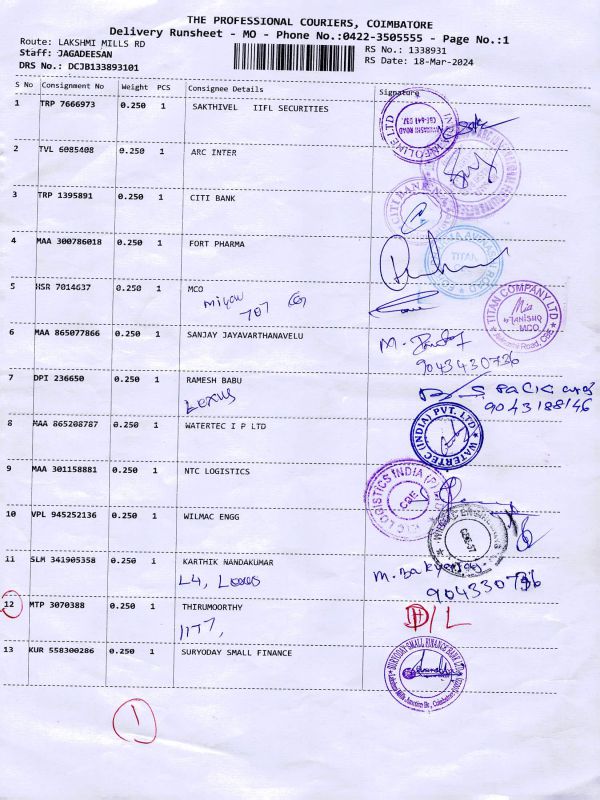 THE PROFESSIONAL COURIERS, COIMBATORE
Delivery Runsheet - MO - Phone No.:0422-3505555 - Page No.:1
Route: LAKSHMI MILLS RD
RS No.: 1338931
Staff: JAGADEESAN
RS Date: 18-Mar-2024
DRS No.: DCJB133893101
S No Consignment No Weight PCS Consignee Details Signature
1 TRP 7666973 0.250 1 SAKTHIVEL IIFL SECURITIES
2 TVL 6085408 0.250 1 ARC INTER
3 TRP 1395891 0.250 1 CITI BANK
CITI BANK
4 MAA 300786018 0.250 1 FORT PHARMA
TITAN
5 HSR 7014637 0.250 1 MCO
707
TITAN COMPANY LTD
TANISHQ
MCO
Avinashi Road, CBE
6 MAA 865077866 0.250 1 SANJAY JAYAVARTHANAVELU
9043430736
7 DPI 236650 0.250 1 RAMESH BABU
Lexus
9043188146
8 MAA 865208787 0.250 1 WATERTEC I P LTD
WATERTEC (INDIA) PVT. LTD
9 MAA 301158881 0.250 1 NTC LOGISTICS
LOGISTICS INDIA (P)
CBE
10 VPL 945252136 0.250 1 WILMAC ENGG
11 SLM 341905358 0.250 1 KARTHIK NANDAKUMAR
L4, Lexus
12 MTP 3070388 0.250 1 THIRUMOORTHY
D/L
13 KUR 558300286 0.250 1 SURYODAY SMALL FINANCE
SURYODAY SMALL FINANCE BANK LTD
1